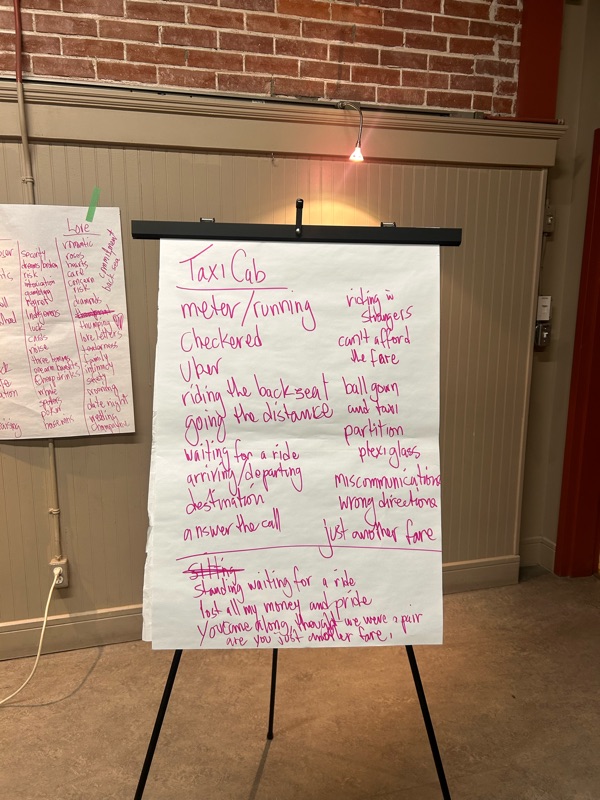 Love
romantic
roses
hearts
care
concern
risk
diamonds
thumping
love letters
tenderness
family
intimacy
safety
drowning
date night
melting
champagne
commitment
security
risk
intoxication
gambling
Indigenous
luck
cards
noise
cheap drinks
poker
Taxi Cab
meter/running
checkered
Uber
riding the backseat
going the distance
waiting for a ride
arriving/departing
destination
answer the call
riding w
strangers
can't afford
the fare
ball gown
and taxi
partition
plexiglass
miscommunications
wrong directions
just another fare
sitting
standing waiting for a ride
lost all my money and pride
You came along, thought we were a pair
are you just another fare,